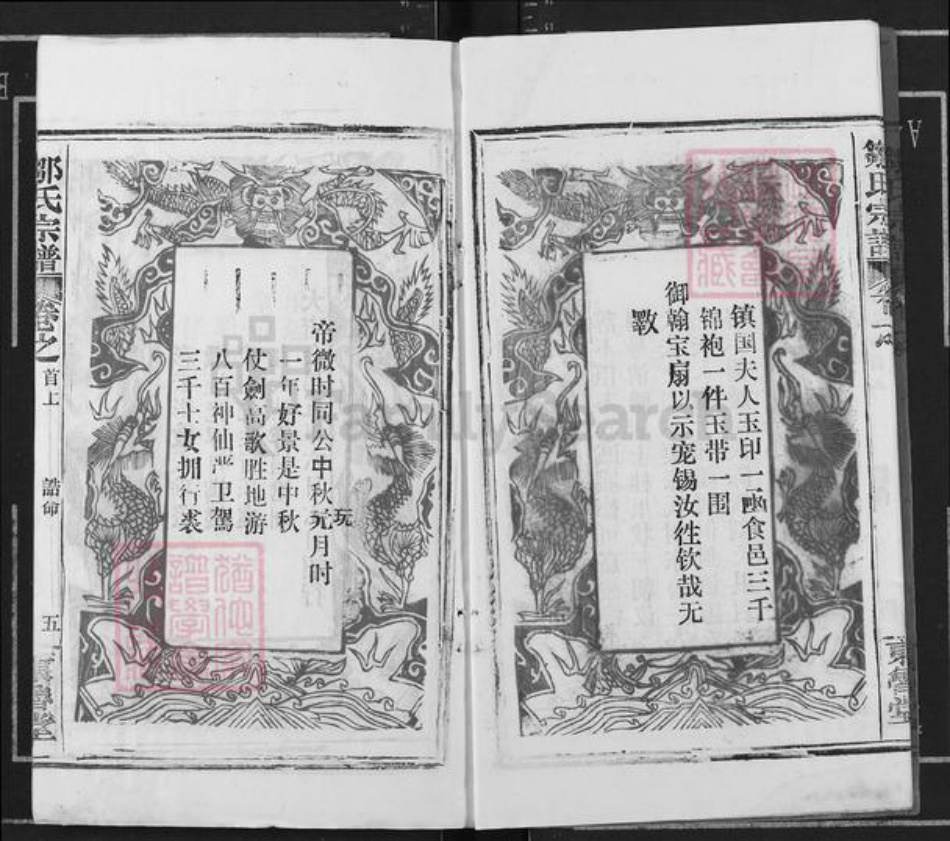 镇国夫人玉印一函食邑三千
锦袍一件玉带一围
御翰宝扇以示宠锡汝往钦哉无
斁
帝微时同公中秋玩月时
一年好景是中秋
仗劍高歌胜地游
八百神仙严卫駕
三千士女拥行裘
鄒氏宗譜
卷之
首上
誥命
五